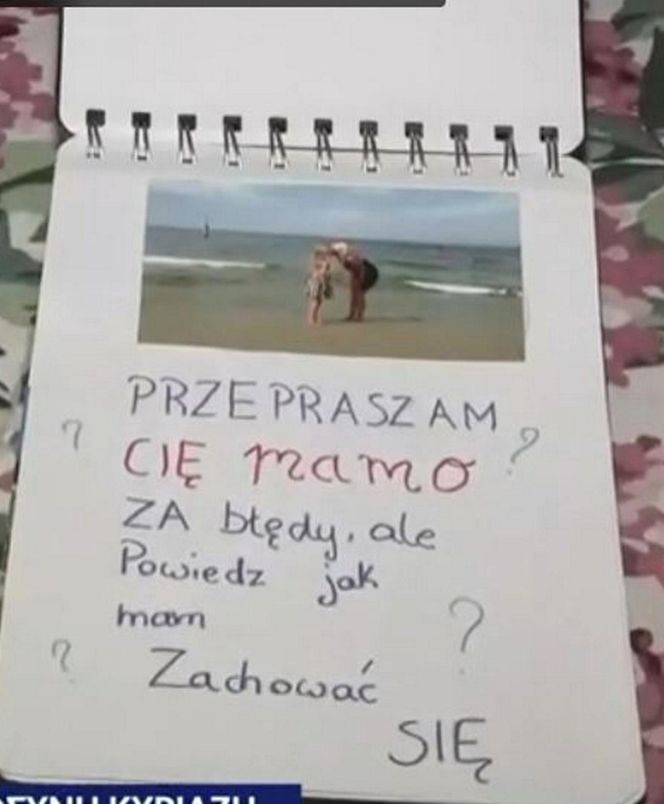 PRZEPRASZAM
? CIĘ mamo ?
ZA błędy, ale
Powiedz jak
mam ?
? Zachować
SIĘ